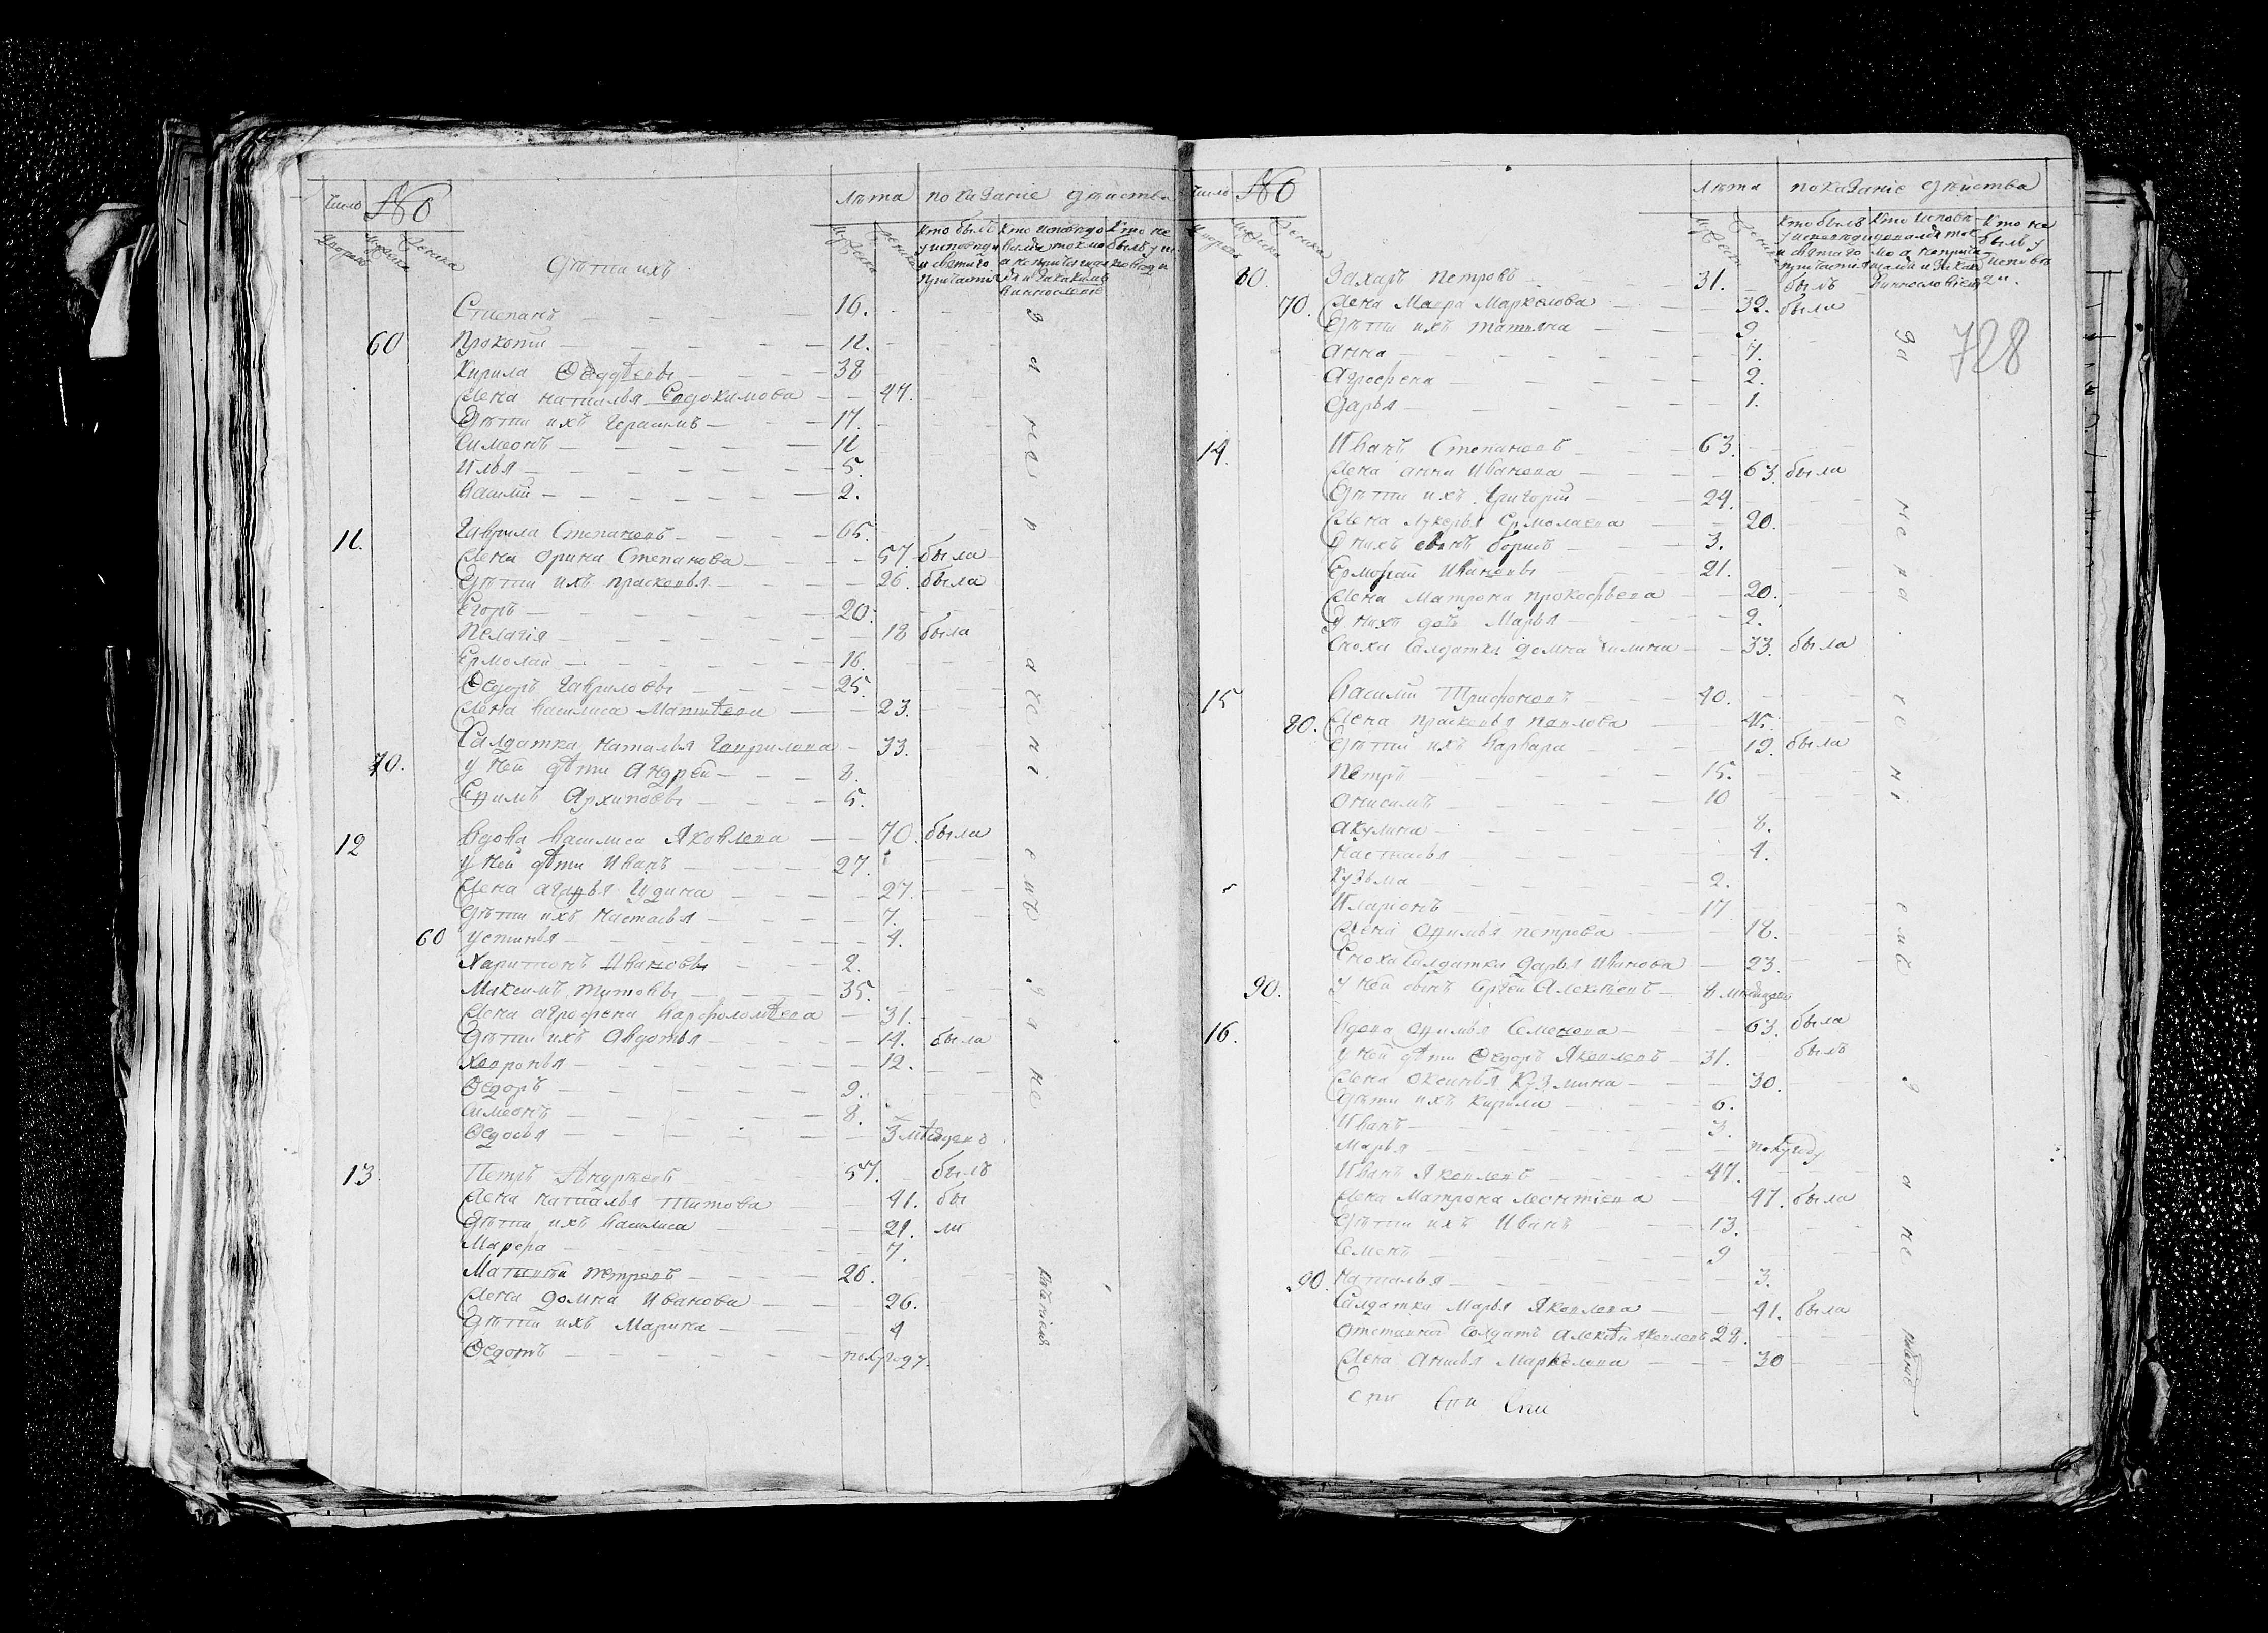 Число № лѣта показанiе дѣйства
Дворовъ Мужеска Женска Мужеска Женска
Кто былъ у исповѣди и святаго причастiя
Кто исповѣдовался токмо а не причащался и за какимъ виннословiемъ
Кто не былъ у исповѣди
дѣти ихъ
Степанъ 16.
60 Прокопiй 12.
Кирила Фаддѣевъ 38
Жена наталья Евдокимова 47.
дѣти ихъ Герасимъ 17.
Симеонъ 12
Илья 5.
Василiй 2.
11. Гаврила Степановъ 65.
Жена Орина Степанова 57. была
дѣти ихъ прасковья 26. была
Егоръ 20.
Пелагiя 18 была
Ермолай 16.
Ѳедоръ Гавриловъ 25.
Жена василиса Матвѣева 23.
Салдатка наталья Гаврилова 33.
70. у ней дѣти Андрей 8.
Ефимъ Архиповъ 5.
12 Вдова василиса Яковлева 70. была
у ней дѣти Иванъ 27.
Жена агафья Гудина 27.
дѣти ихъ настасья 7.
60 устинья 4.
Харитонъ Ивановъ 2.
Максимъ Титовъ 35.
Жена агрофена варфоломѣева 31.
дѣти ихъ Авдотья 14. была
Хевронья 12.
Ѳедоръ 9.
Симеонъ 8.
Ѳедосья 3 мѣсяцевъ
13 Петръ Андрѣевъ 57. былъ
Жена наталья Титова 41. бы
дѣти ихъ василиса 21. ли
Марфа 7.
Матвѣй петровъ 26.
Жена домна Иванова 26.
дѣти ихъ Марина 4
Ѳедотъ полугоду.
за нерачениемъ
Число № лѣта показанiе дѣйства
Дворовъ Мужеска Женска Мужеска Женска
Кто былъ у исповѣди и святаго причастiя
Кто исповѣдовался токмо а не причащался и за какимъ виннословiемъ
Кто не былъ у исповѣди.
60. Захаръ Петровъ 31. былъ
70. Жена Мавра Маркелова 32. была
дѣти ихъ татьяна 9.
анна 7.
Агрофена 2.
дарья 1.
728
14. Иванъ Степановъ 63.
Жена анна Иванова 63. была
дѣти ихъ Григорiй 24.
Жена лукерья Ермолаева 20.
у нихъ сынъ борисъ 3.
Ермолай Ивановъ 21.
Жена Матрона прокофьева 20.
у нихъ дочь Марья 2.
Сноха Салдатка домна 33. была
15 Василiй Трифоновъ 40.
80. Жена прасковья павлова 45.
дѣти ихъ варвара 19. была
Петръ 15.
Онисимъ 10
акулина 8.
настасья 4.
Кузьма 2.
Иларiонъ 17
Жена Афимья петрова 18.
Сноха Салдатка дарья Иванова 23.
90. у ней сынъ Сергѣй Алексѣевъ 8 мѣсяцовъ
16. Вдова афимья Семенова 63. была
у ней дѣти Ѳедоръ Яковлевъ 31. былъ
Жена Оксинья Кузмина 30.
дѣти ихъ Кирила 6.
Иванъ 3.
Марья полугоду
Иванъ Яковлевъ 47.
Жена Матрона леонтiева 47. была
дѣти ихъ Иванъ 13.
Семенъ 9
90. Наталья 3.
Салдатка Марья Яковлева 41. была
отставной Солдатъ Алексѣй яковлевъ 28.
Жена анисья Маркелова 30
за нерачениемъ